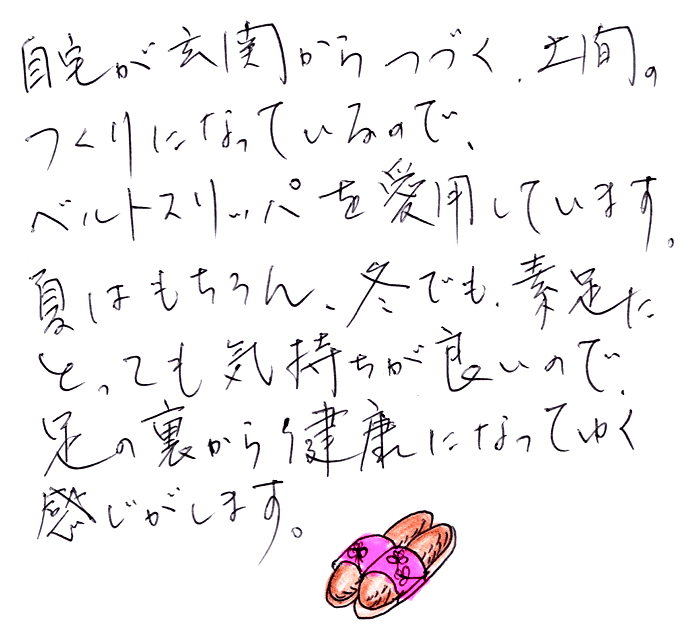 自宅が玄関からつづく、土間の
つくりになっているので、
ベルトスリッパを愛用しています。
夏はもちろん、冬でも、素足だ
とっても気持ちが良いので、
足の裏から健康になってゆく
感じがします。